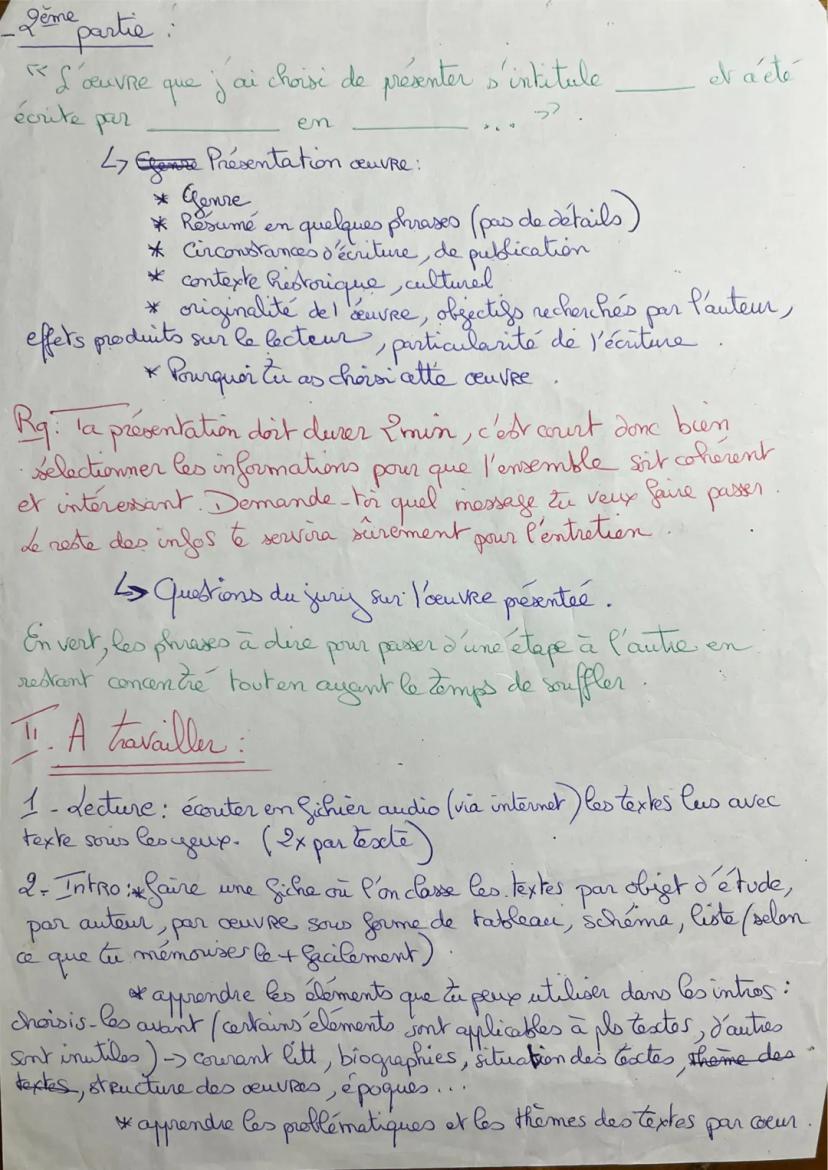 - 2ème partie :
"L'œuvre que j'ai choisi de présenter s'intitule _____ et a été
écrite par _________ en ________ ... ".
↳ Genre Présentation œuvre :
* Genre
* Résumé en quelques phrases (pas de détails)
* Circonstances d'écriture, de publication
* contexte historique, culturel
* originalité de l'œuvre, objectifs recherchés par l'auteur,
effets produits sur le lecteur, particularité de l'écriture.
* Pourquoi tu as choisi cette œuvre.
Rq : Ta présentation doit durer 2min, c'est court donc bien
sélectionner les informations pour que l'ensemble soit cohérent
et intéressant. Demande-toi quel message tu veux faire passer.
Le reste des infos te servira sûrement pour l'entretien.
↳ Questions du jury sur l'œuvre présenteé.
En vert, les phrases à dire pour passer d'une étape à l'autre en
restant concentré tout en ayant le temps de souffler.
II. A travailler :
1 - Lecture : écouter en fichier audio (via internet) les textes lus avec
texte sous les yeux. (2x par texte)
2 - Intro : * faire une fiche où l'on classe les textes par objet d'étude,
par auteur, par œuvre sous forme de tableau, schéma, liste (selon
ce que tu mémorises le + facilement).
* apprendre les éléments que tu peux utiliser dans les intros :
choisis-les avant (certains éléments sont applicables à pls textes, d'autres
sont inutiles) → courant litt, biographies, situation des textes, thème des
textes, structure des œuvres, époques...
* apprendre les problématiques et les thèmes des textes par cœur.